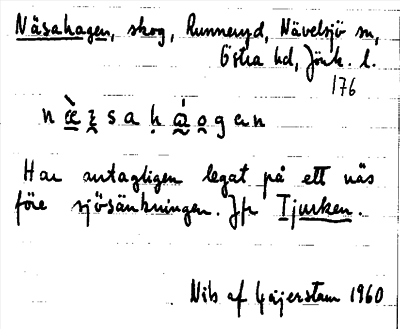 Näsahagen, skog, Runneryd, Nävelsjö sn,
Östra hd, Jönk. l.
176
n æ̀ z s a h á o g e n
Har antagligen legat på ett näs
före sjösänkningen. Jfr Tjurken.
Nils af Geijerstam 1960